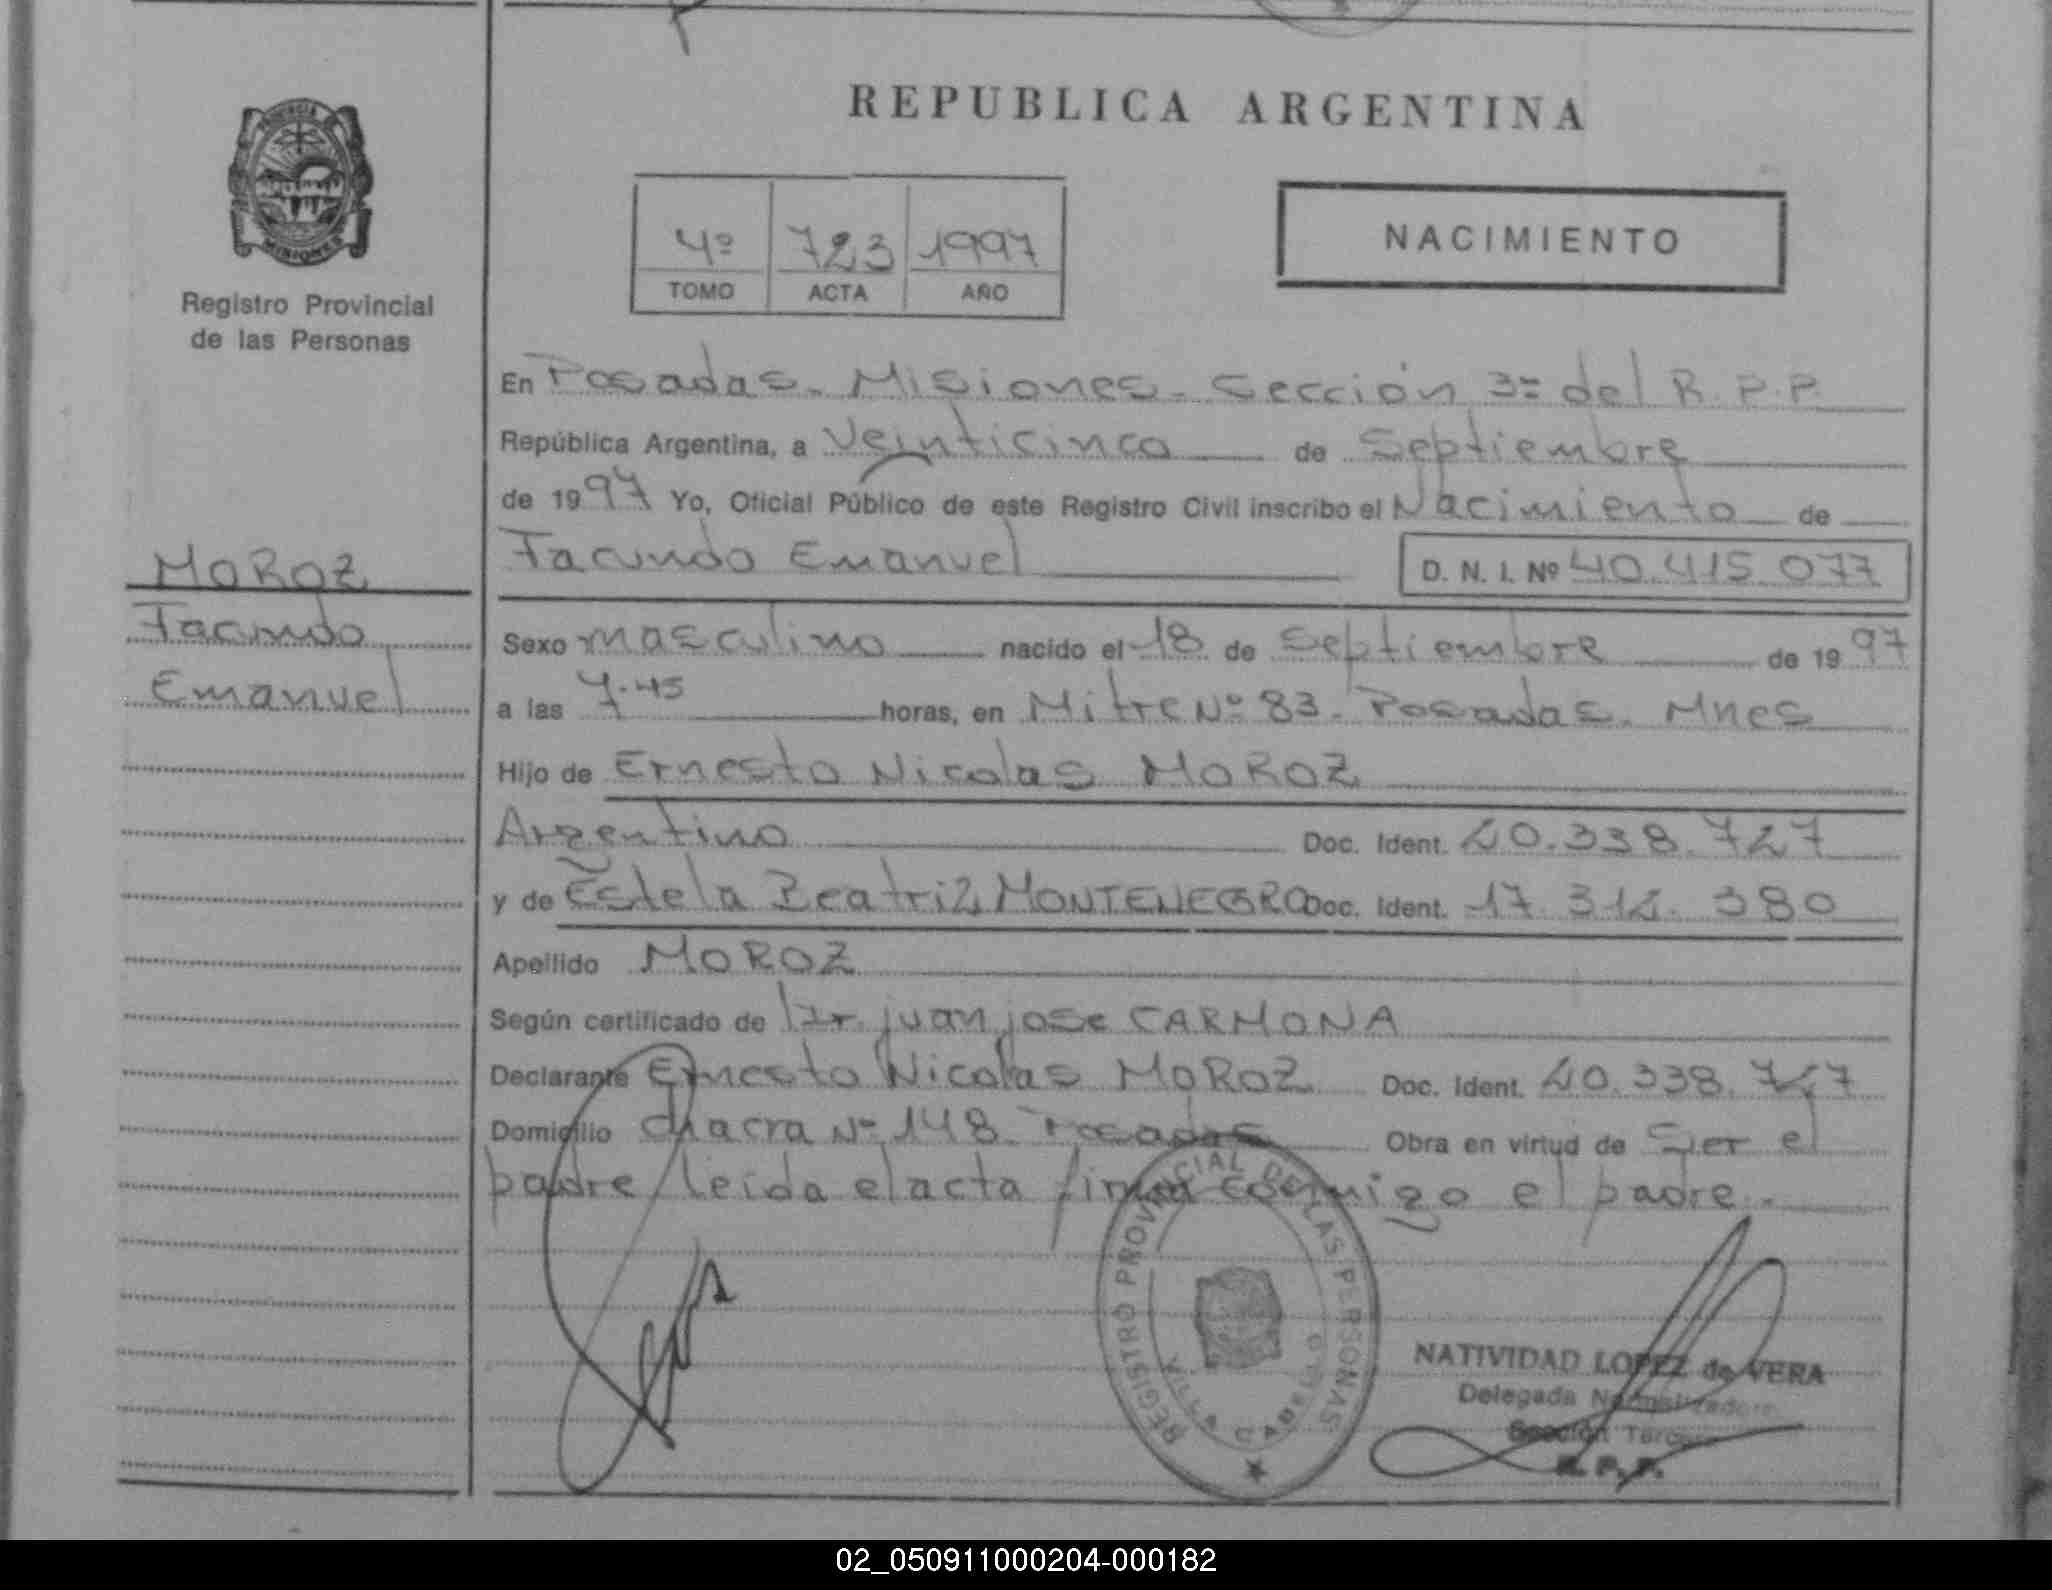 REPUBLICA ARGENTINA
PROVINCIA DE
MISIONES
Registro Provincial
de las Personas
4º 723 1997
TOMO ACTA AÑO
NACIMIENTO
En Posadas - Misiones - Sección 3ª del R.P.P.
República Argentina, a Veinticinco de Septiembre
de 1997 Yo, Oficial Público de este Registro Civil inscribo el Nacimiento de
Facundo Emanuel D. N. I. Nº 40.415.077
MOROZ
Facundo
Emanuel
Sexo masculino nacido el 18 de Septiembre de 1997
a las 7.45 horas, en Mitre Nº 83. Posadas. Mnes
Hijo de Ernesto Nicolas MOROZ
Argentino Doc. Ident. 20.338.727
y de Estela Beatriz MONTENEGRO Doc. Ident. 17.312.380
Apellido MOROZ
Según certificado de Dr. juan jose CARMONA
Declarante Ernesto Nicolas MOROZ Doc. Ident. 20.338.727
Domicilio Chacra Nº 148. Posadas Obra en virtud de Ser el
padre/leída el acta firma conmigo el padre.-
REGISTRO PROVINCIAL DE LAS PERSONAS
VILLA CABELLO
NATIVIDAD LOPEZ de VERA
Delegada Normalizadora
Sección Tercera
R. P. P.
02_050911000204-000182